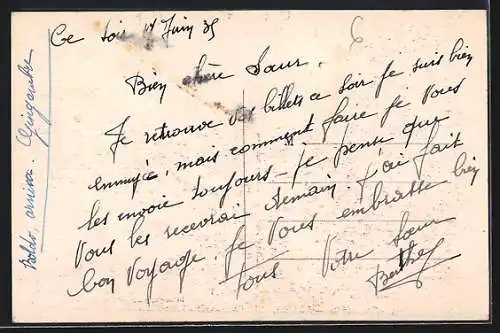 Ce soir 17 Juin 35
Bien chère Sœur,
Je retrouve vos billets ce soir je suis bien
ennuyé, mais comment faire je vous
les envoie toujours - je pense que
vous les recevrai demain. J'ai fait
bon voyage. Je vous embrasse bien
tous Votre Sœur
Berthe
6